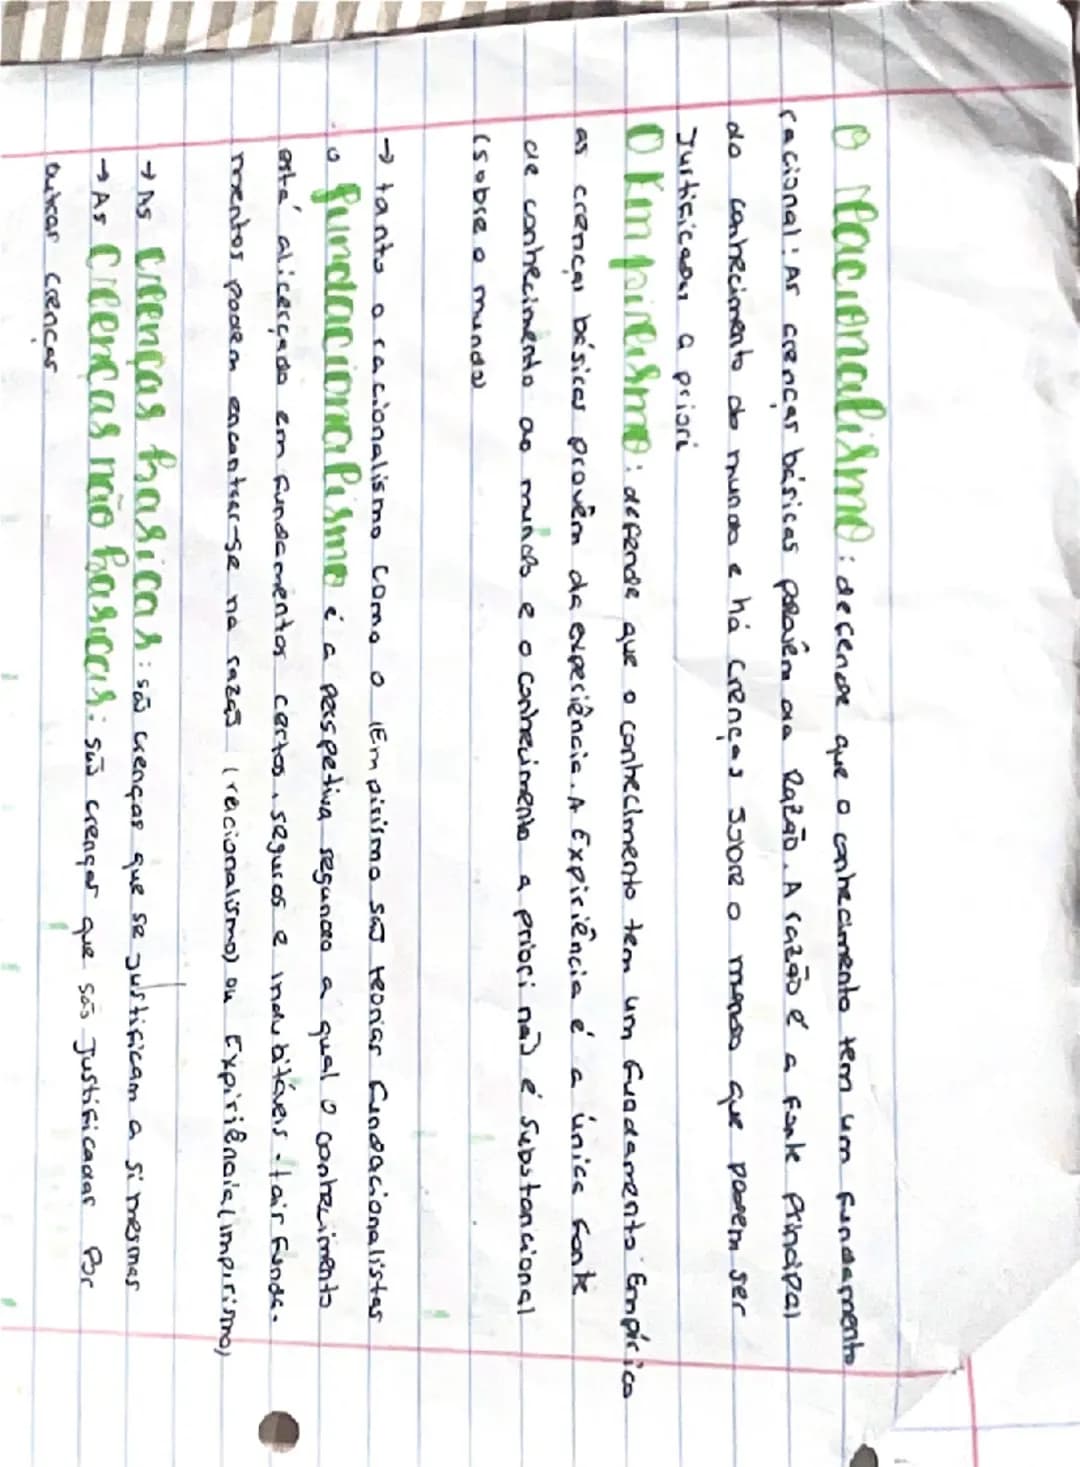 O Racionalismo: defende que o conhecimento tem um fundamento
racional. As crenças básicas provêm da Razão. A razão é a fonte principal
do conhecimento do mundo e há crenças sobre o mundo que podem ser
Justificadas a priori
O Empirismo: defende que o conhecimento tem um fundamento Empírico
as crenças básicas provêm da experiência. A Expiriência é a única fonte
de conhecimento do mundo e o conhecimento a priori não é substancional
(sobre o mundo)
→ tanto o racionalismo como o Empirismo são teorias fundacionalistas
o fundacionalismo é a perspetiva segundo a qual o conhecimento
está alicerçado em fundamentos certos, seguros e indubitáveis - tais funda-
mentos podem encontrar-se na razão (racionalismo) ou Expiriência (impirismo)
→ As crenças basicas: são crenças que se justificam a si mesmas
→ As Crenças não basicas: são crenças que são Justificadas Por
outras crenças